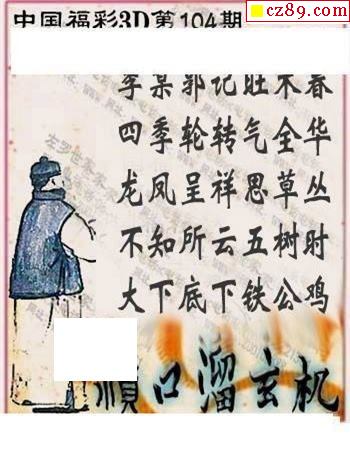 cz89.com
中国福彩3D第104期
郭记旺木春
四季轮转气全华
龙凤呈祥思草丛
不知所云五树时
大下底下铁公鸡
顺口溜玄机